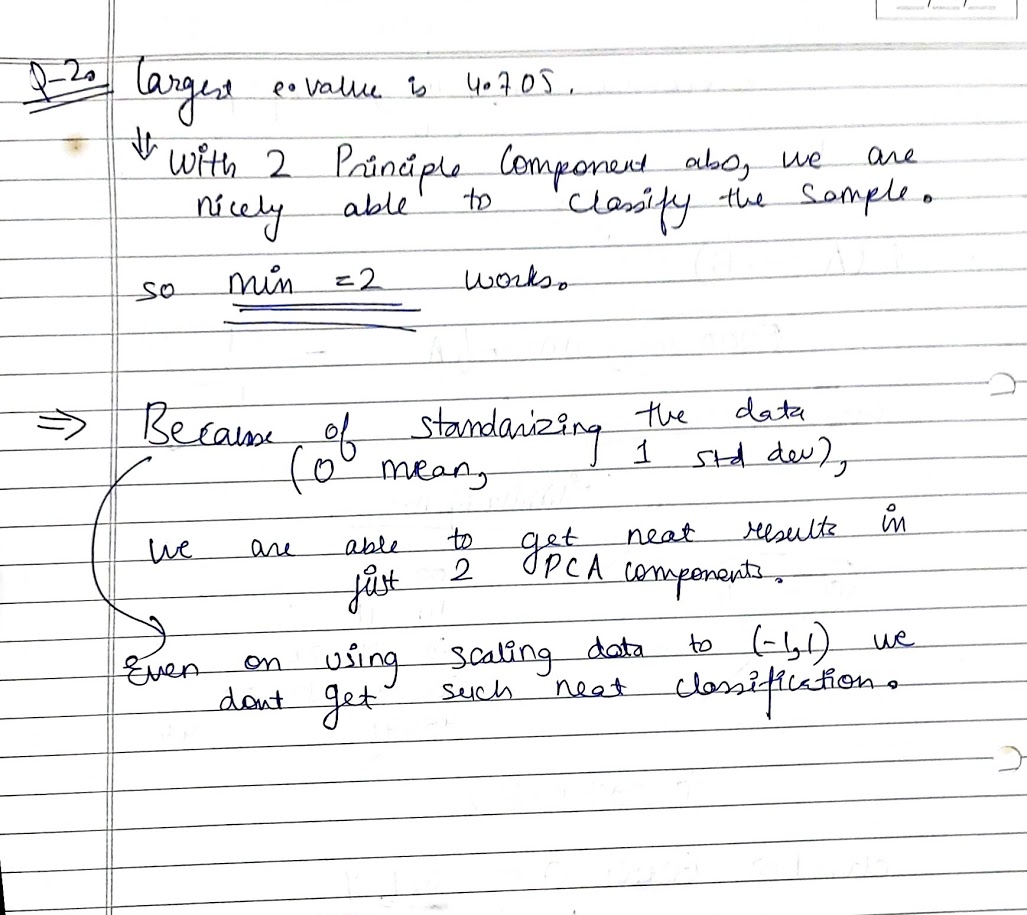 Q-2. largest e.value is 4.705.
⇓ with 2 Principle Component also, we are
nicely able to classify the sample.
so min =2 works.
⇒ Because of standarizing the data
(0 mean, 1 std dev),
we are able to get neat results in
just 2 PCA components.
Even on using scaling data to (-1,1) we
dont get such neat classification.